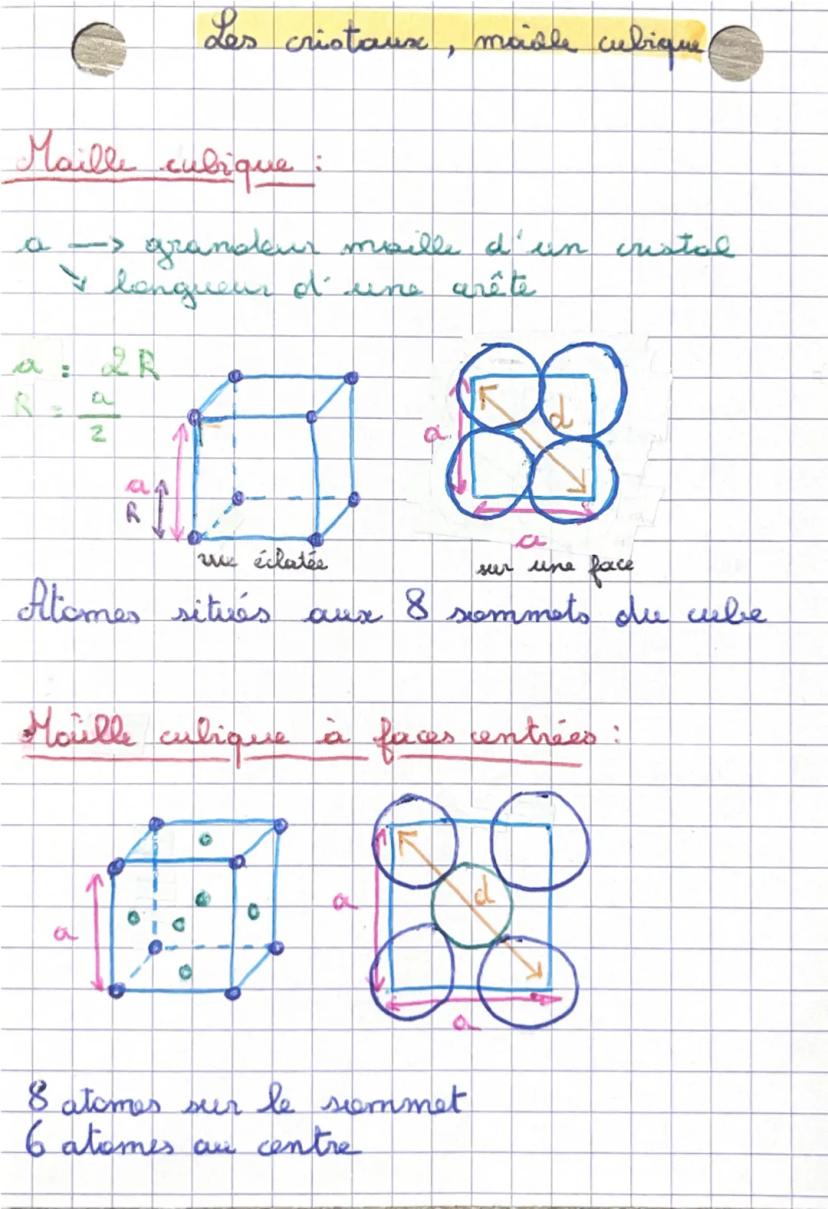 Les cristaux, maille cubique
Maille cubique :
a → grandeur maille d'un cristal
↘ longueur d'une arête
a = 2R
R = a/2
a
R
vue éclatée
a
d
a
sur une face
Atomes situés aux 8 sommets du cube
Maille cubique à faces centrées :
a
a
d
a
8 atomes sur le sommet
6 atomes au centre